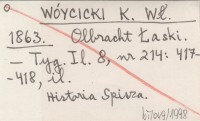 WÓYCICKI K. Wł.
1863. Olbracht Łaski.
— Tyg. Il. 8, nr 214: 417-
-418, il.
Historia Spisza.
b7/049/1998